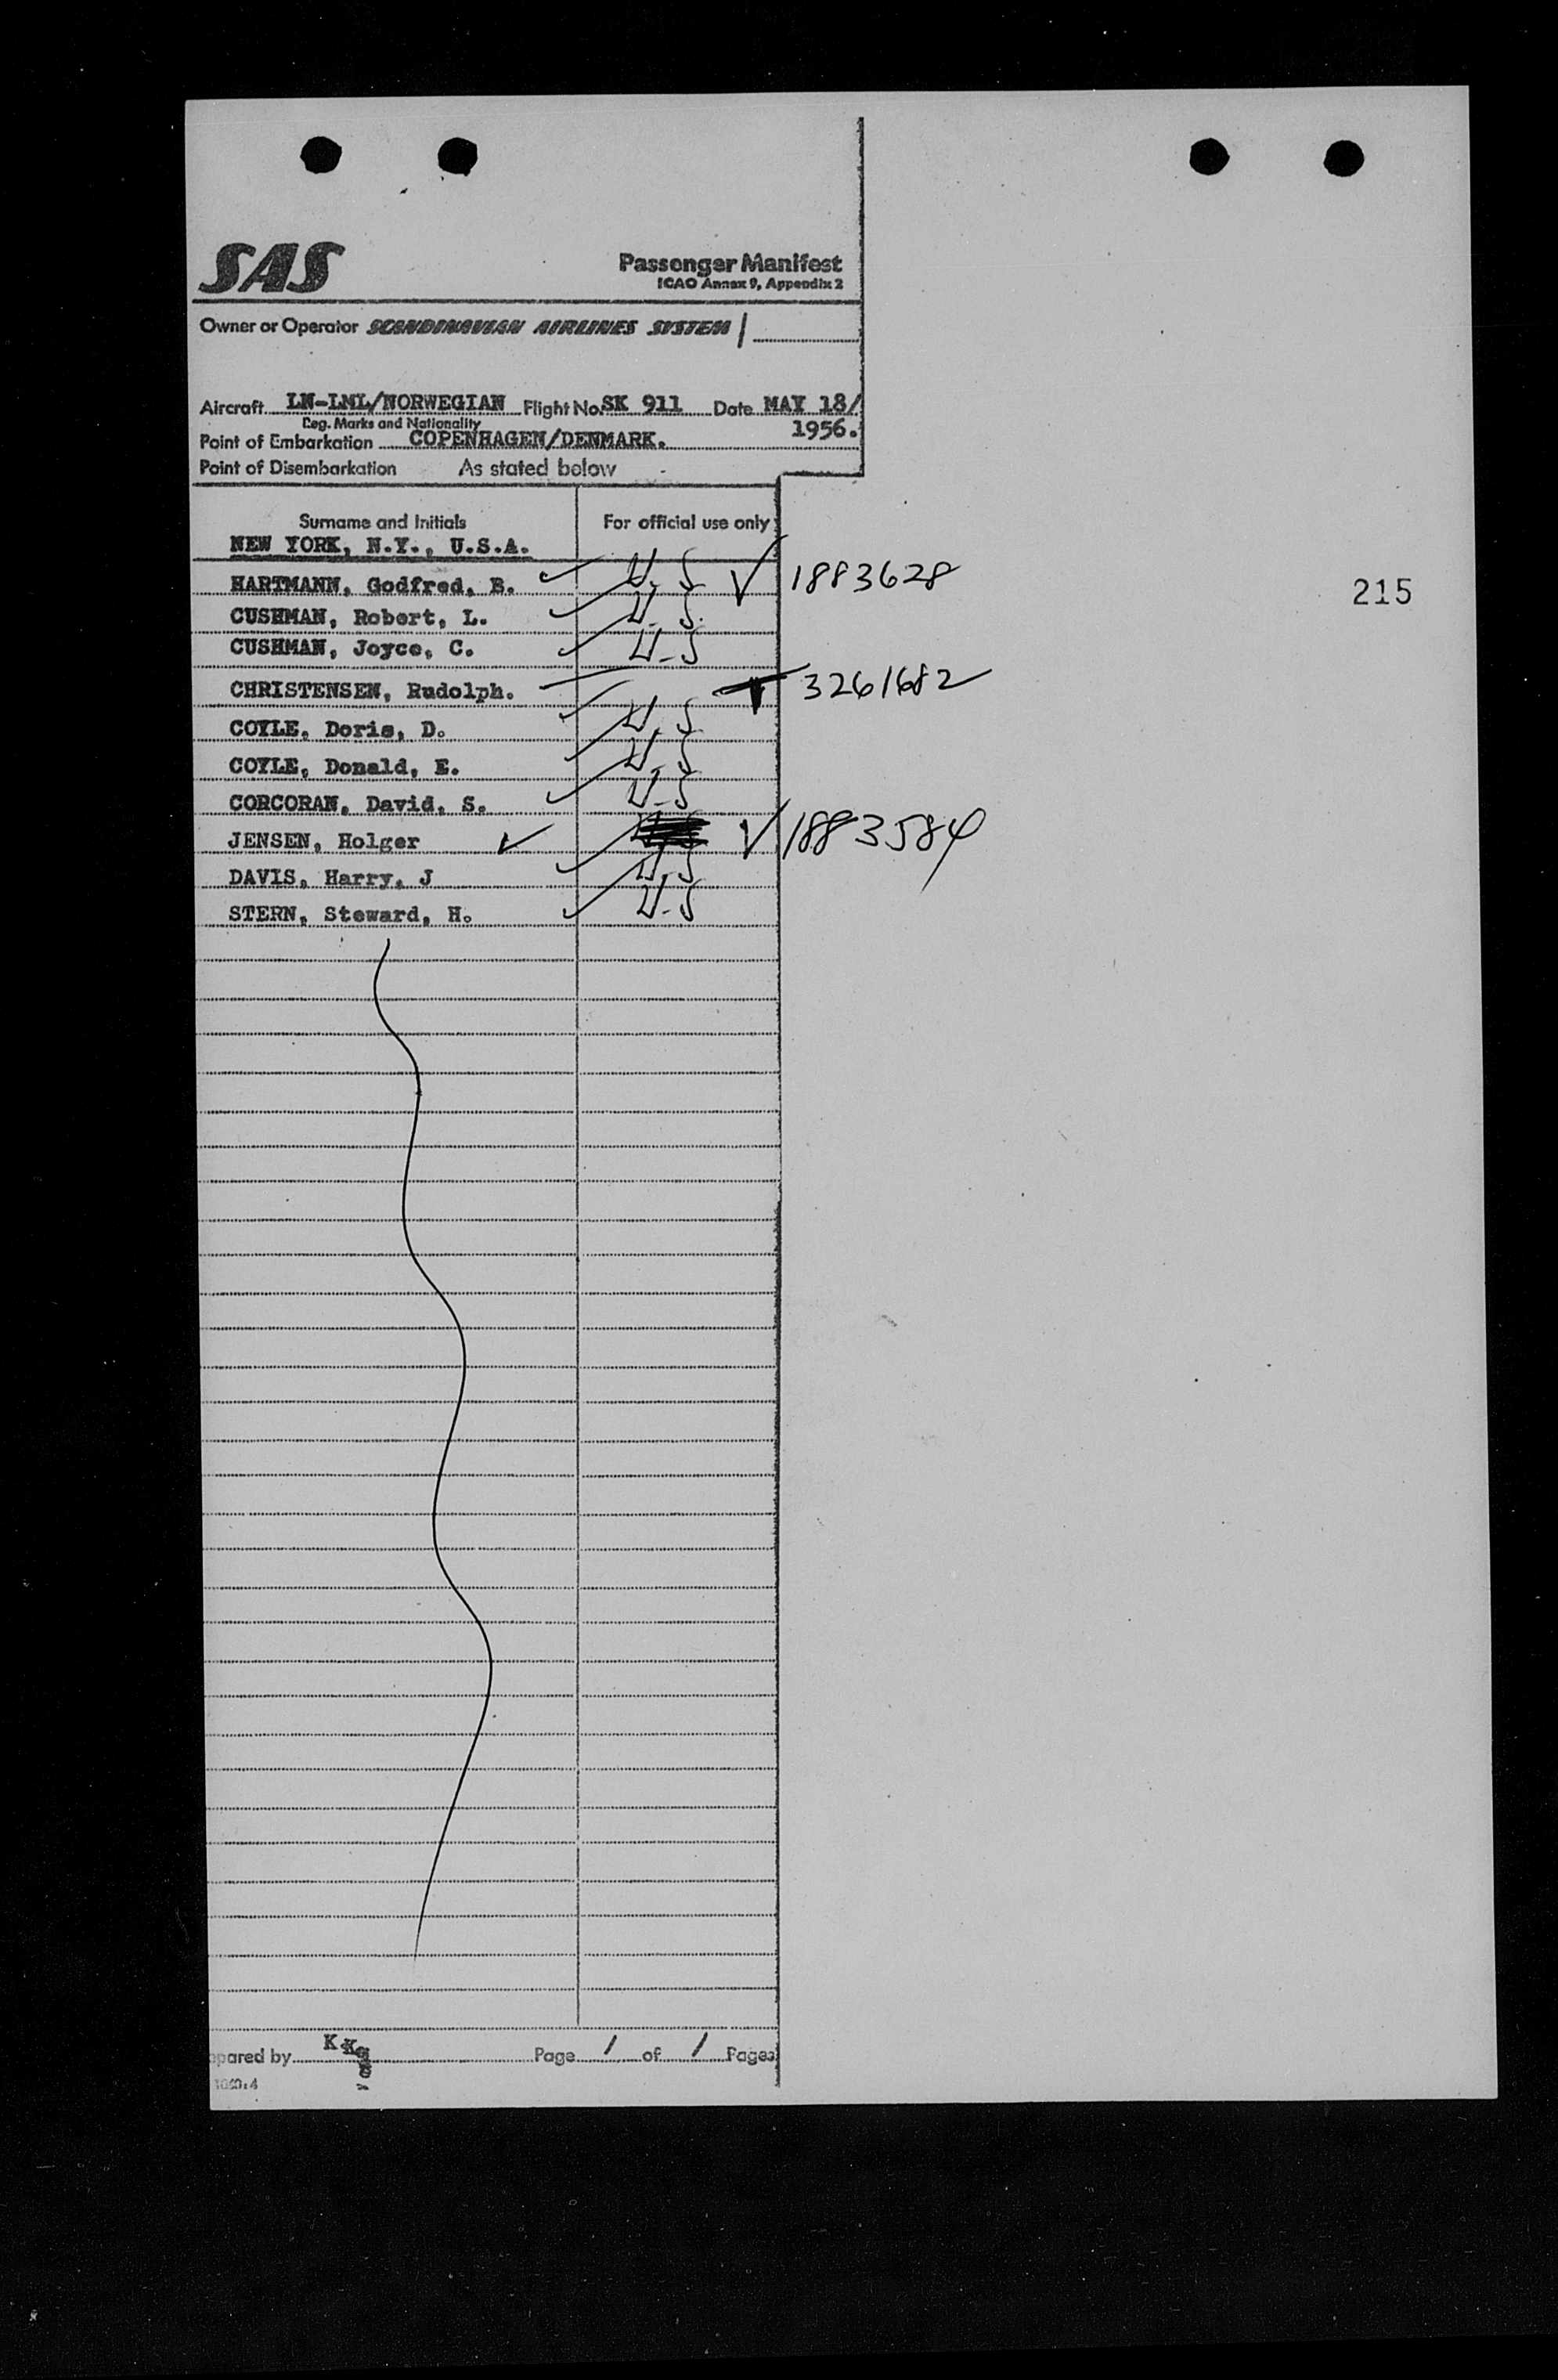 SAS
Passenger Manifest
ICAO Annex 9, Appendix 2
Owner or Operator SCANDINAVIAN AIRLINES SYSTEM
Aircraft LN-LML/NORWEGIAN Flight No. SK 911 Date MAY 18/
Reg. Marks and Nationality 1956.
Point of Embarkation COPENHAGEN/DENMARK.
Point of Disembarkation As stated below
Surname and Initials For official use only
NEW YORK, N.Y., U.S.A.
HARTMANN, Godfred, B. U.S 1883628
215
CUSHMAN, Robert, L. U.S.
CUSHMAN, Joyce, C. U-S
CHRISTENSEN, Rudolph. 3261682
COYLE, Doris, D. U.S
COYLE, Donald, E. U.S
CORCORAN, David, S. U-S
JENSEN, Holger 1883584
DAVIS, Harry, J U.S
STERN, Steward, H. U-S
pared by Page 1 of 1 Pages